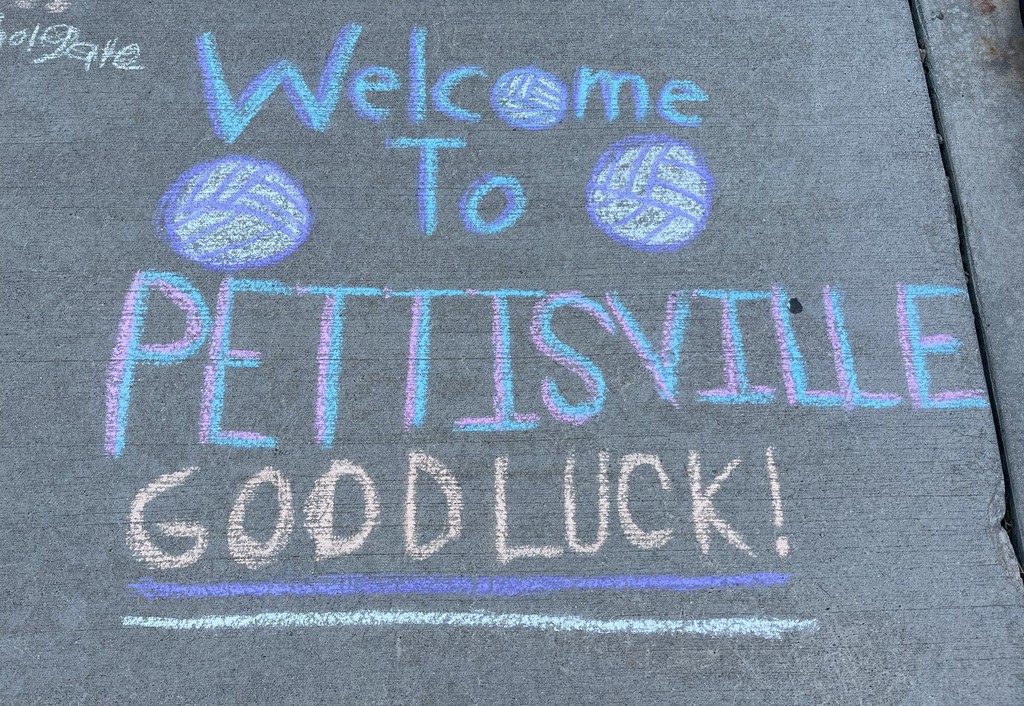 Holgate
Welcome
To
PETTISVILLE
GOOD LUCK!